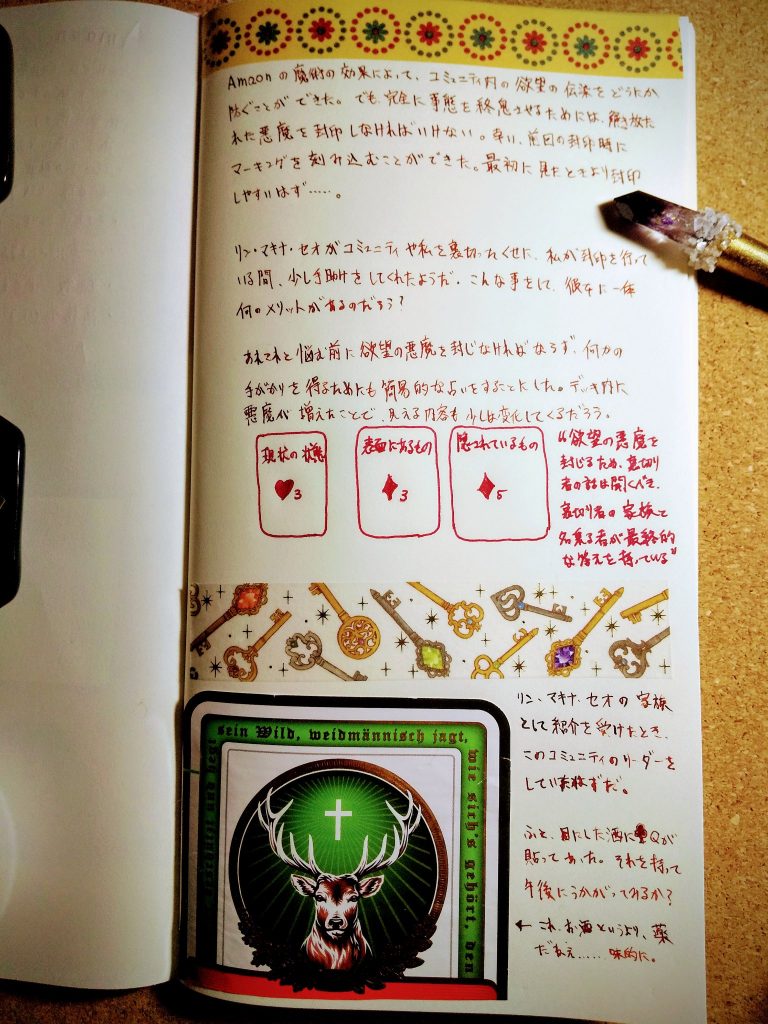 Amaonの魔術の効果によって、コミュニティ内の欲望の伝染をどうにか
防ぐことができた。でも、完全に事態を終息させるためには、解き放た
れた悪魔を封印しなければいけない。幸い、前回の封印時に
マーキングを刻み込むことができた。最初に見たときより封印
しやすいはず……。
リン・マキナ・セオがコミュニティや私を裏切ったくせに、私が封印を行って
いる間、少し手助けをしてくれたようだ。こんな事をして、彼女に一体
何のメリットがあるのだろう?
あれこれと悩む前に欲望の悪魔を封じなければならず、何かの
手がかりを得るためにも簡易的な占いをすることにした。デッキ内に
悪魔が増えたことで、見える内容も少しは変化してくるだろう。
現状の状態
♥3
表面にあるもの
♦3
隠されているもの
♦5
“欲望の悪魔を
封じるため、裏切り
者の話は聞くべき。
裏切り者の家族と
名乗る者が最終的
な答えを持っている”
sein Wild, weidmännisch jagt,
wie sich's gehört, den
リン・マキナ・セオの家族
として紹介を受けたとき、
このコミュニティのリーダーを
していたはずだ。
ふと、目にした酒に♠Qが
貼ってあった。それを持って
午後にうかがってみるか?
← これ、お酒というより、薬
だねえ……味的に。